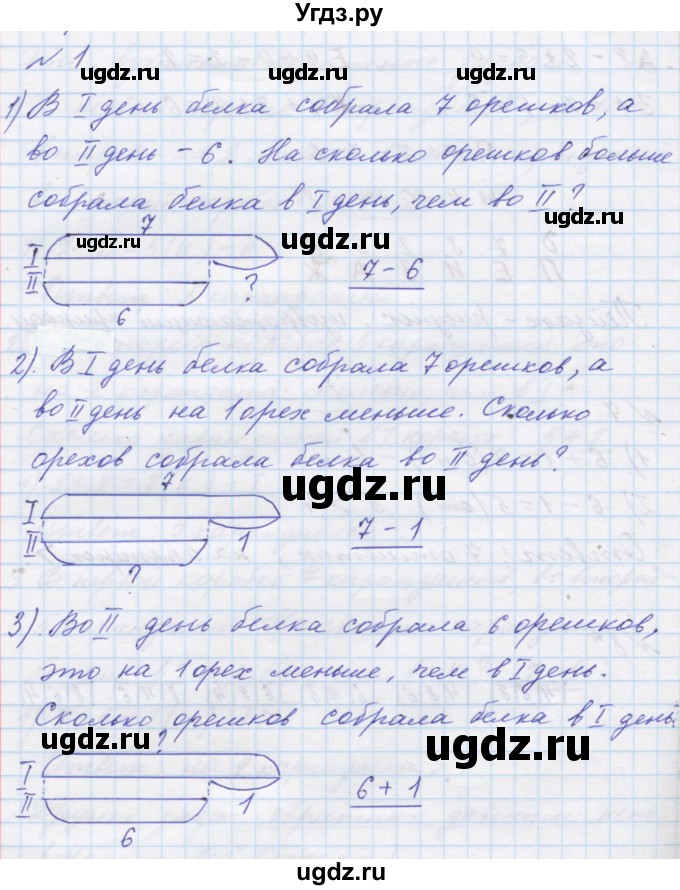 Угдз.ру
№ 1
ugdz.ru ugdz.ru
1) В I день белка собрала 7 орешков, а
во II день – 6. На сколько орешков больше
собрала белка в I день, чем во II?
7
ugdz.ru
ugdz.ru
I
II
?
7 – 6
6
2). В I день белка собрала 7 орешков, а
во II день на 1 орех меньше. Сколько
орехов собрала белка во II день?
7
ugdz.ru
I
II
1
7 – 1
?
3). Во II день белка собрала 6 орешков,
это на 1 орех меньше, чем в I день.
Сколько орешков собрала белка в I день.
ugdz.ru
ugdz.ru
?
I
II
1
6 + 1
6
ugdz.ru